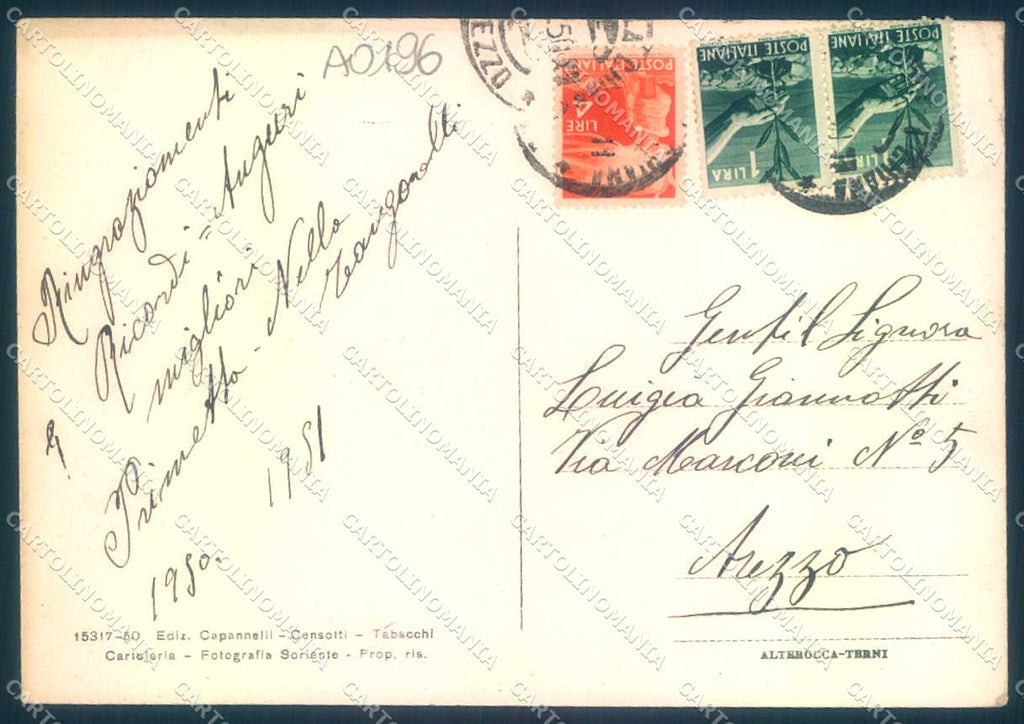 A0196
Ringraziamenti
Ricordi = Auguri
migliori
Primetto - Nello
1950.
1951
15317-50 Ediz. Capannelli - Censotti - Tabacchi
Cartoleria - Fotografia Soriente - Prop. ris.
POSTE ITALIANE
4 LIRE
POSTE ITALIANE
1 LIRA
POSTE ITALIANE
1 LIRA
Gentil Signora
Luigia Giannotti
Via Marconi Nº 5
Arezzo
ALTEROCCA-TERNI
CARTOLINOMANIA